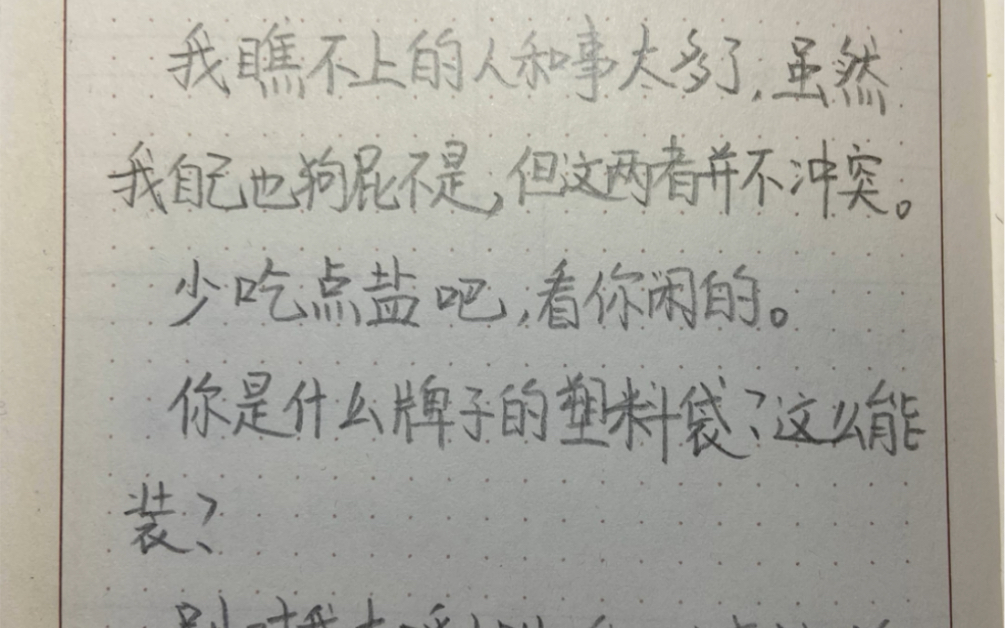 我瞧不上的人和事太多了,虽然
我自己也狗屁不是,但这两者并不冲突。
少吃点盐吧,看你闲的。
你是什么牌子的塑料袋?这么能
装?